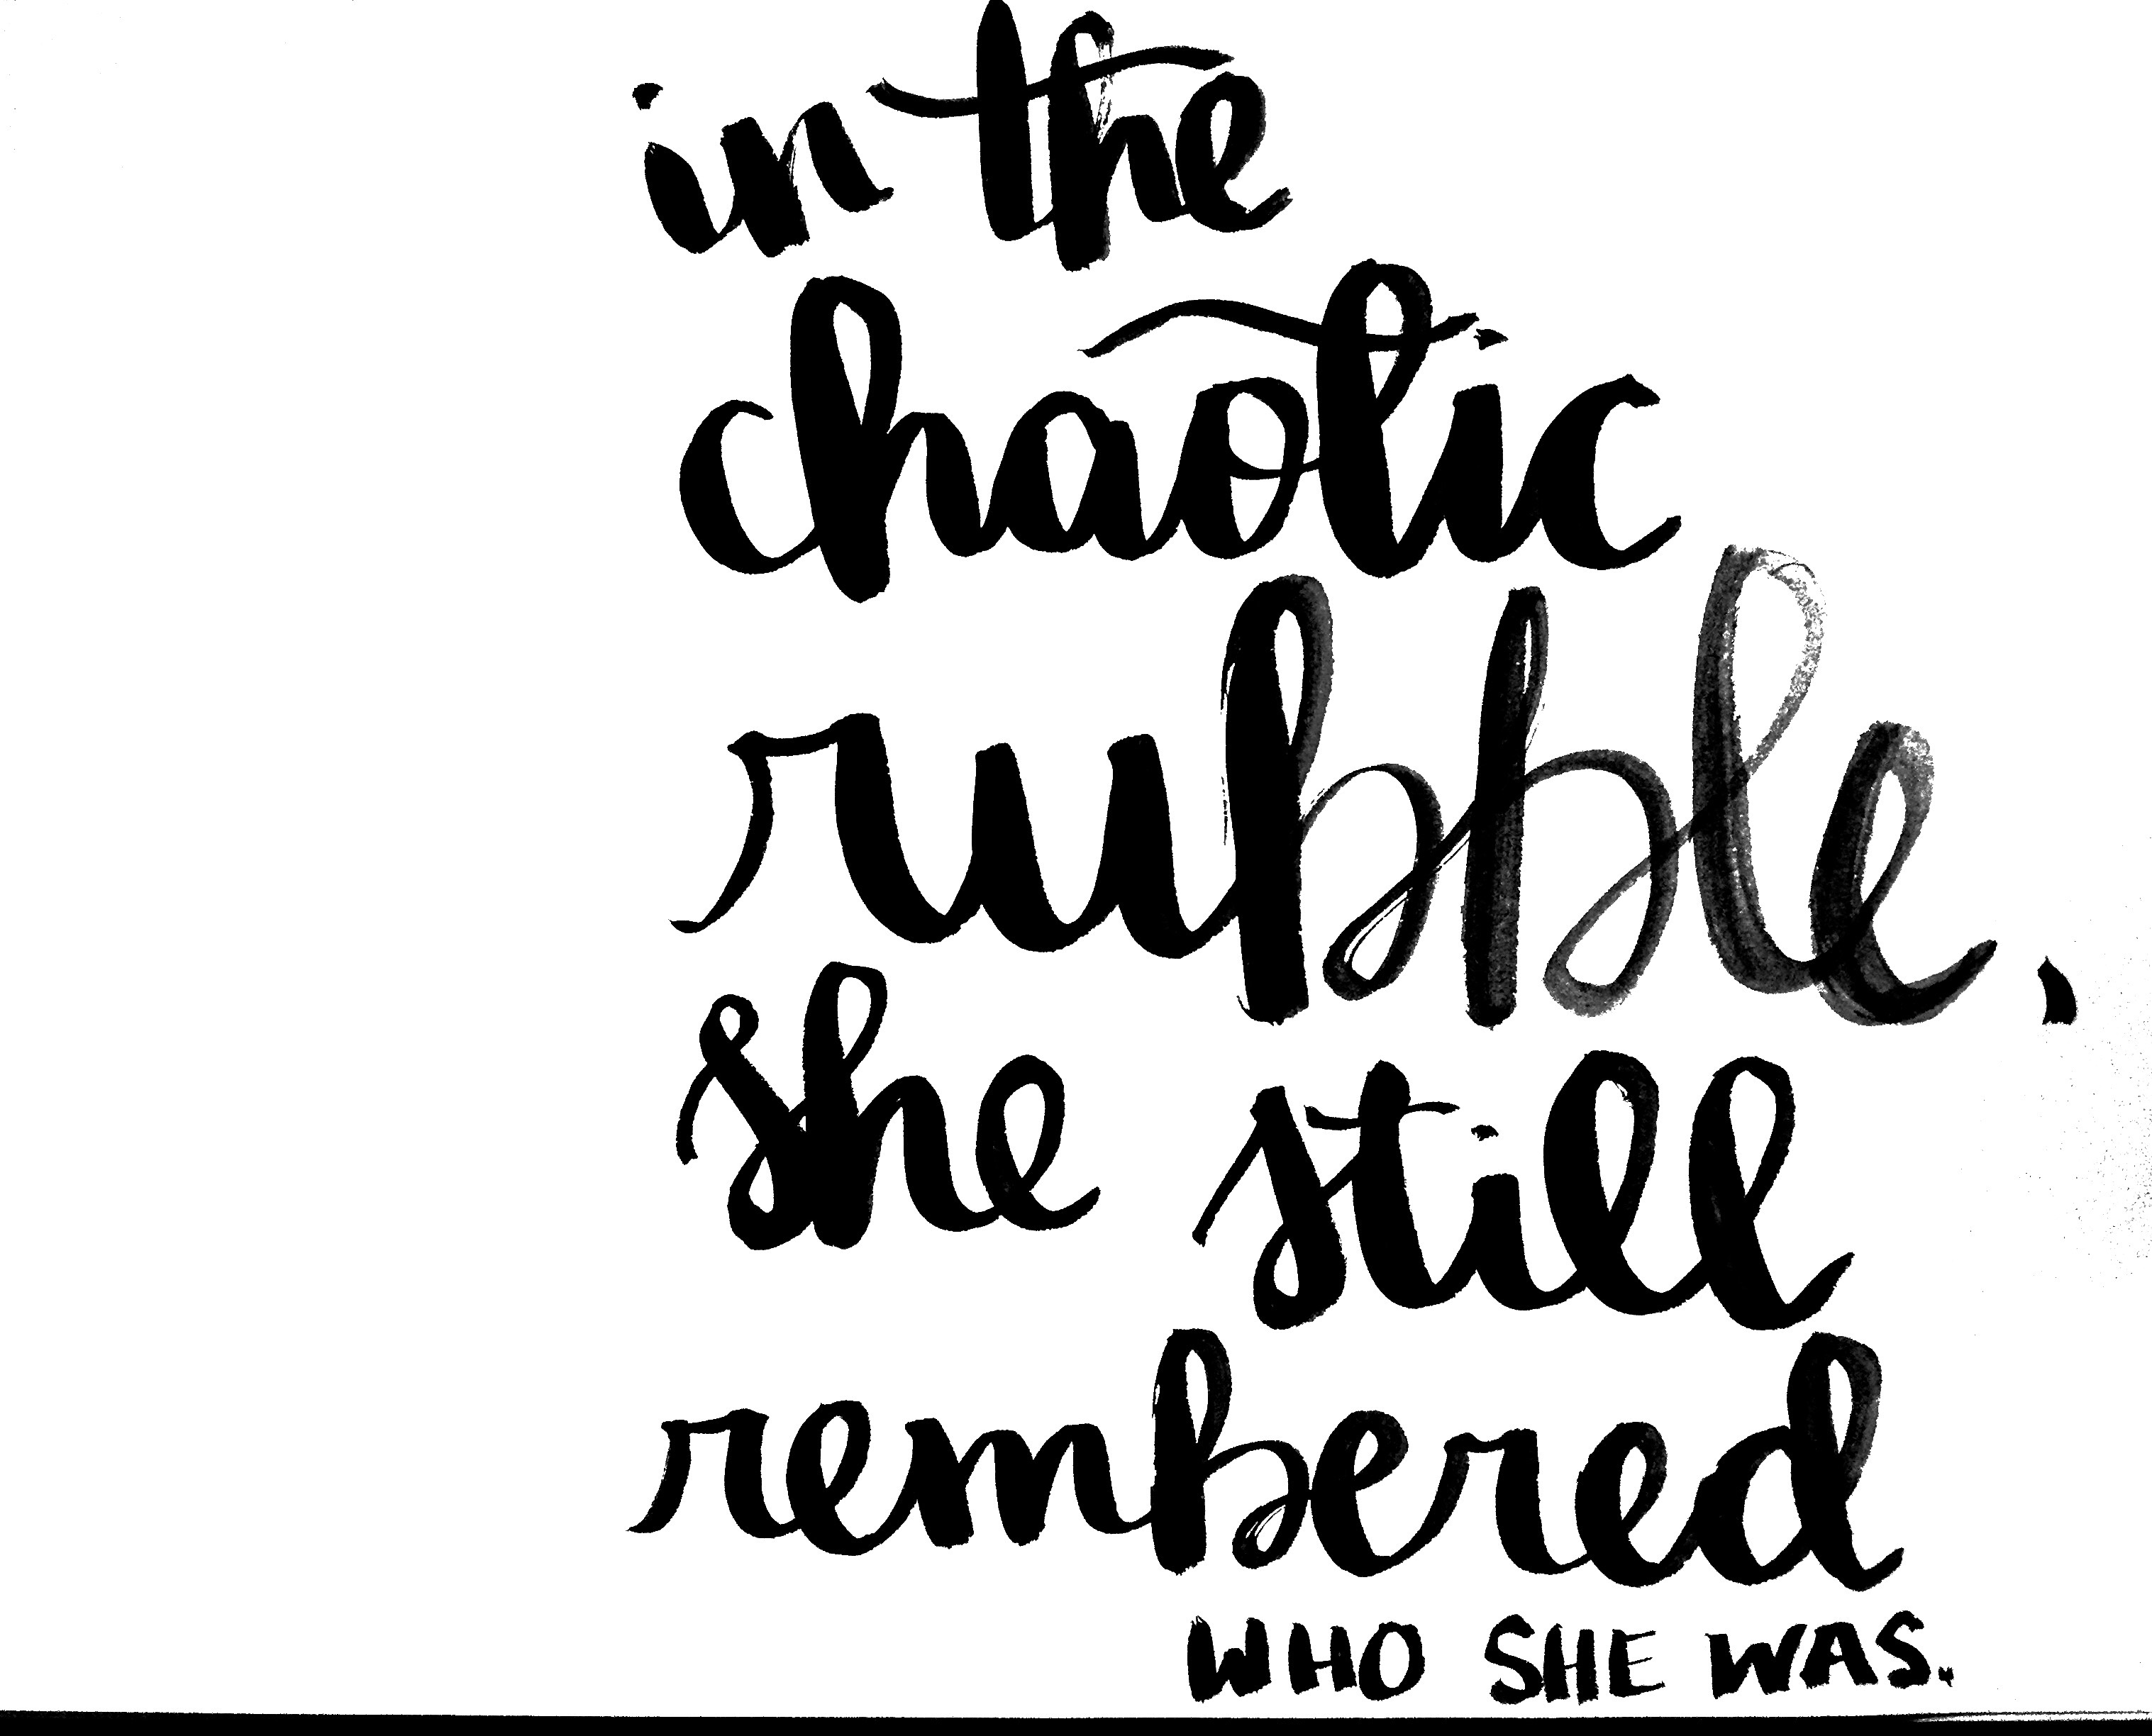 in the
chaotic
rubble,
she still
rembered
WHO SHE WAS.